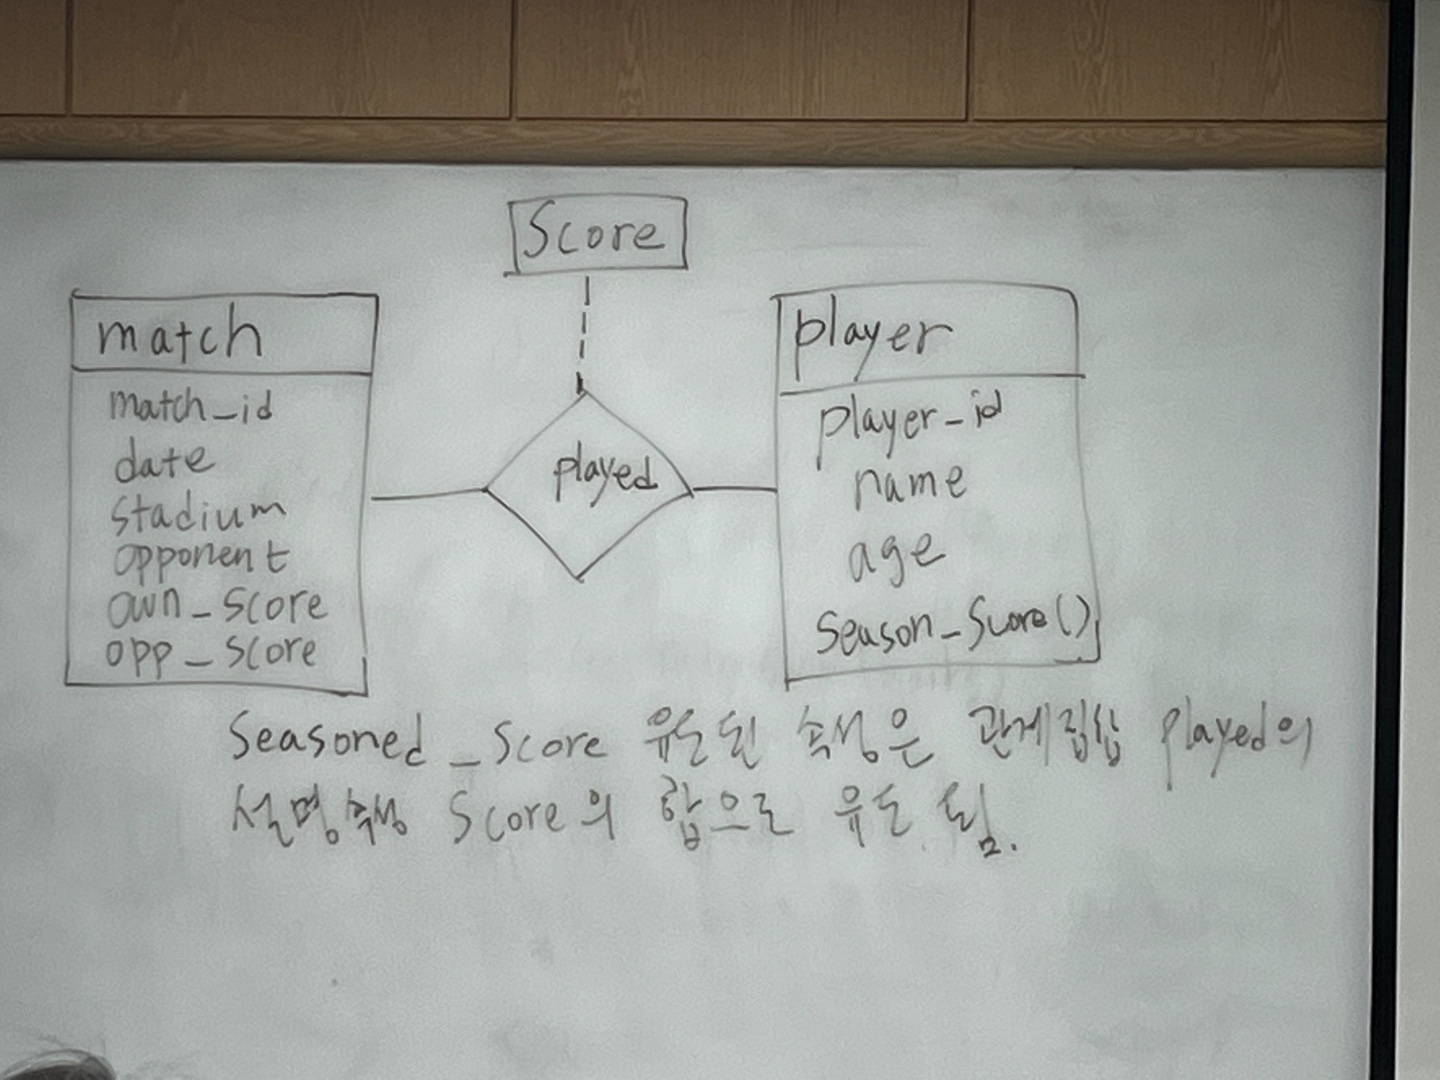 Score
match
match_id
date
stadium
opponent
own_score
opp_score
played
player
player_id
name
age
season_score()
Seasoned_score 유도된 속성은 관계집합 played의
설명속성 Score의 합으로 유도 됨.